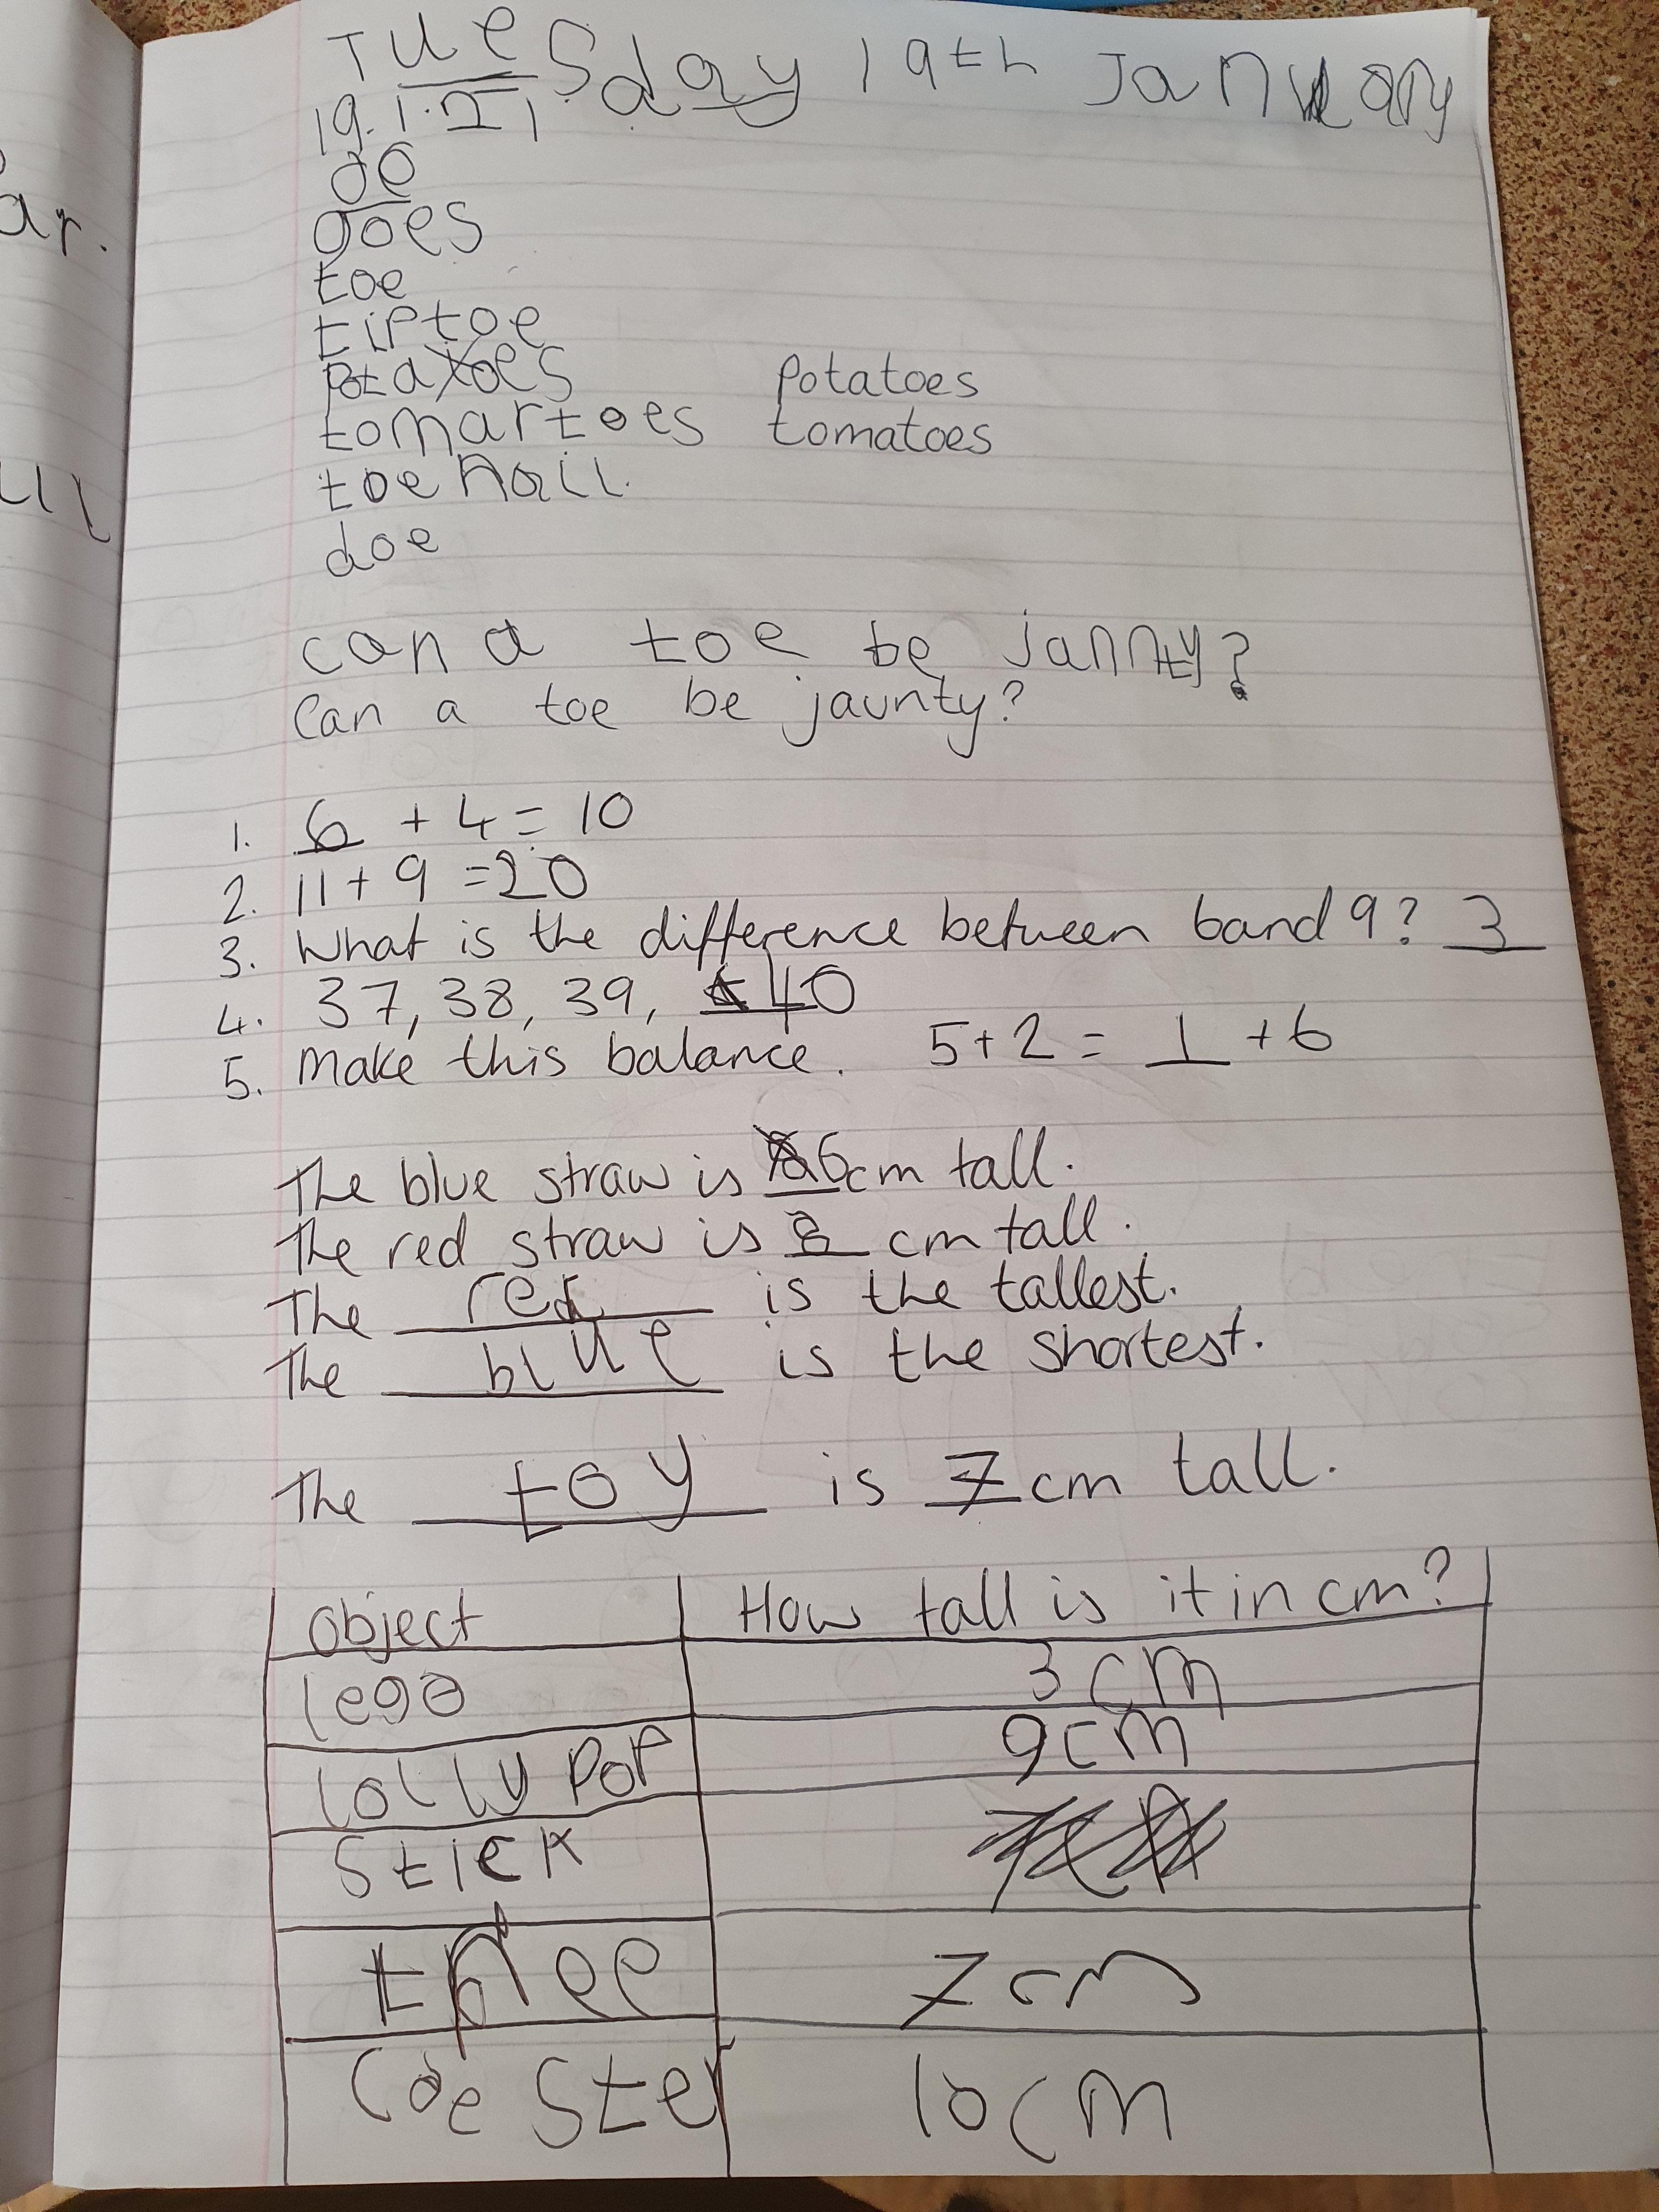 Tuesday 19th January
19.1.21
oe
goes
toe
tiptoe
potatoes potatoes
tomartoes tomatoes
toenail
doe
can a toe be jannty?
Can a toe be jaunty?
1. 6 + 4 = 10
2. 11 + 9 = 20
3. What is the difference between 6 and 9? 3
4. 37, 38, 39, 40
5. Make this balance. 5+2 = 1 + 6
The blue straw is 6cm tall.
The red straw is 8 cm tall.
The red is the tallest.
The blue is the shortest.
The toy is 7cm tall.
object How tall is it in cm?
lego 3cm
lolly pop 9cm
stick
7cm
coester 10cm
ar.